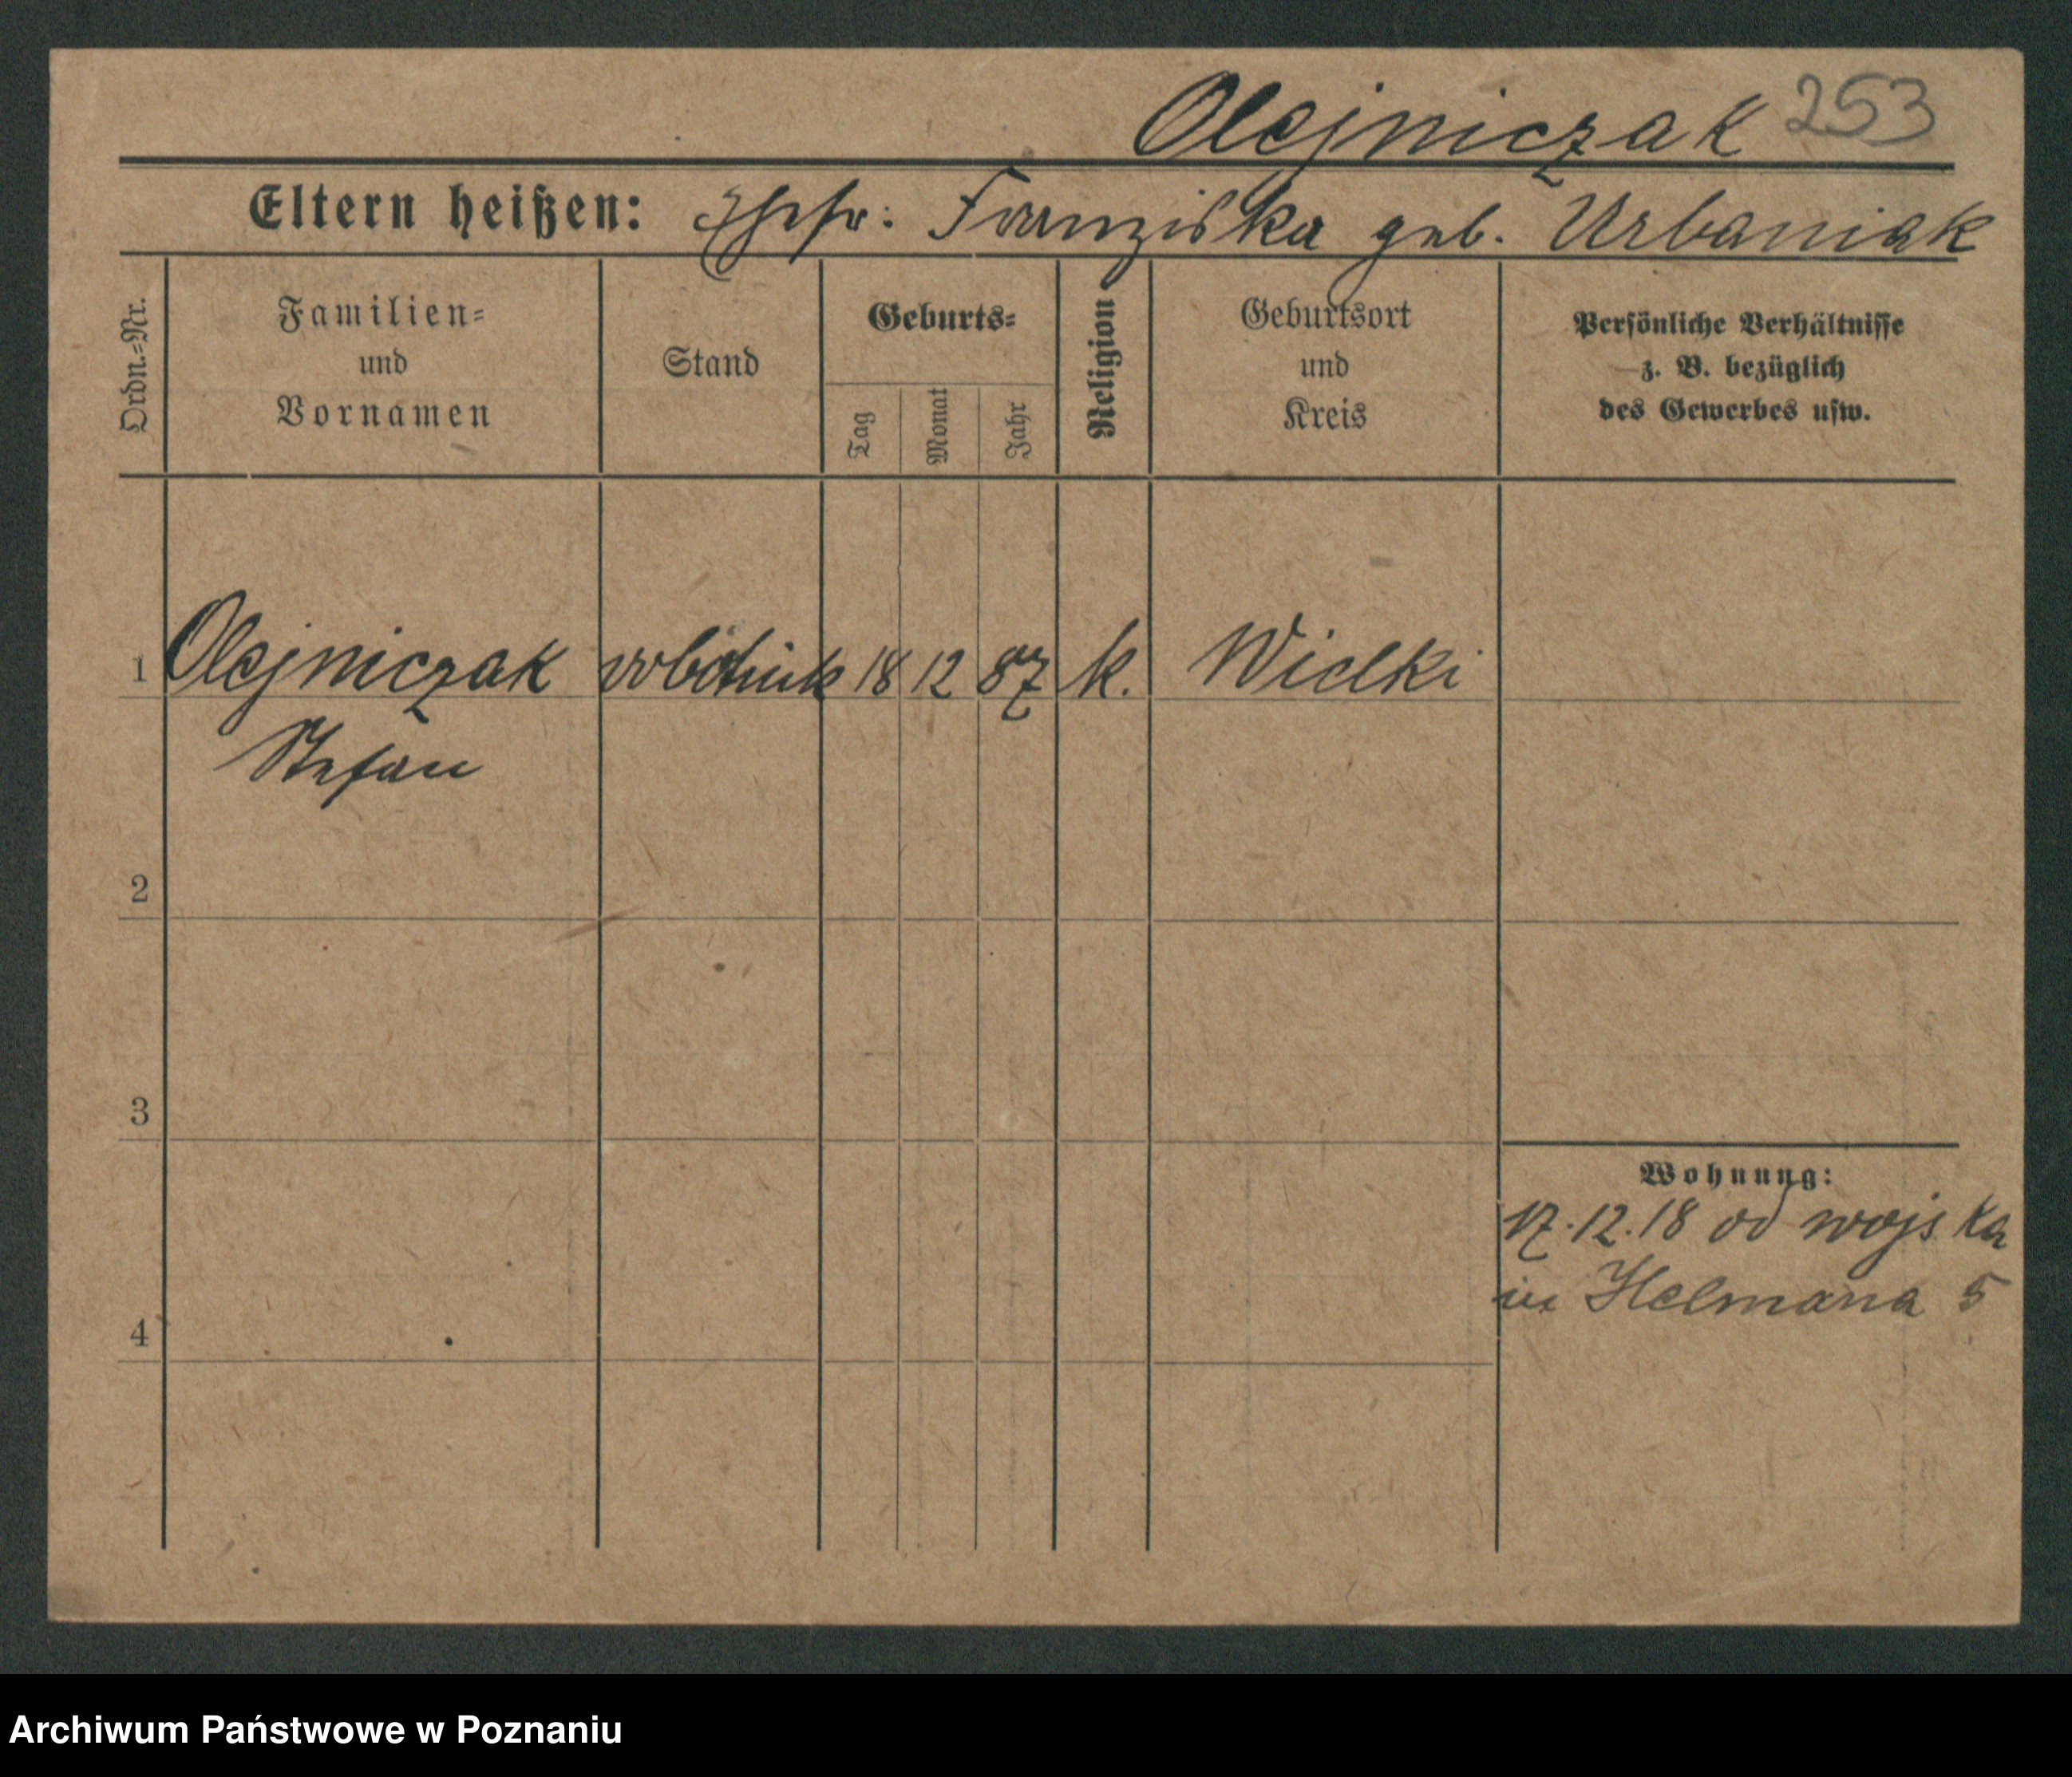 Olejniczak 253
Eltern heißen: Ehefr: Franziska geb. Urbaniak
Ordn.=Nr.
Familien=
und
Vornamen
Stand
Geburts=
Tag
Monat
Jahr
Religion
Geburtsort
und
Kreis
Persönliche Verhältnisse
z. B. bezüglich
des Gewerbes usw.
1 Olejniczak robotnik 18 12 87 k. Wielki
Stefan
2
3
Wohnung:
17.12.18 od wojska
5
4
Archiwum Państwowe w Poznaniu